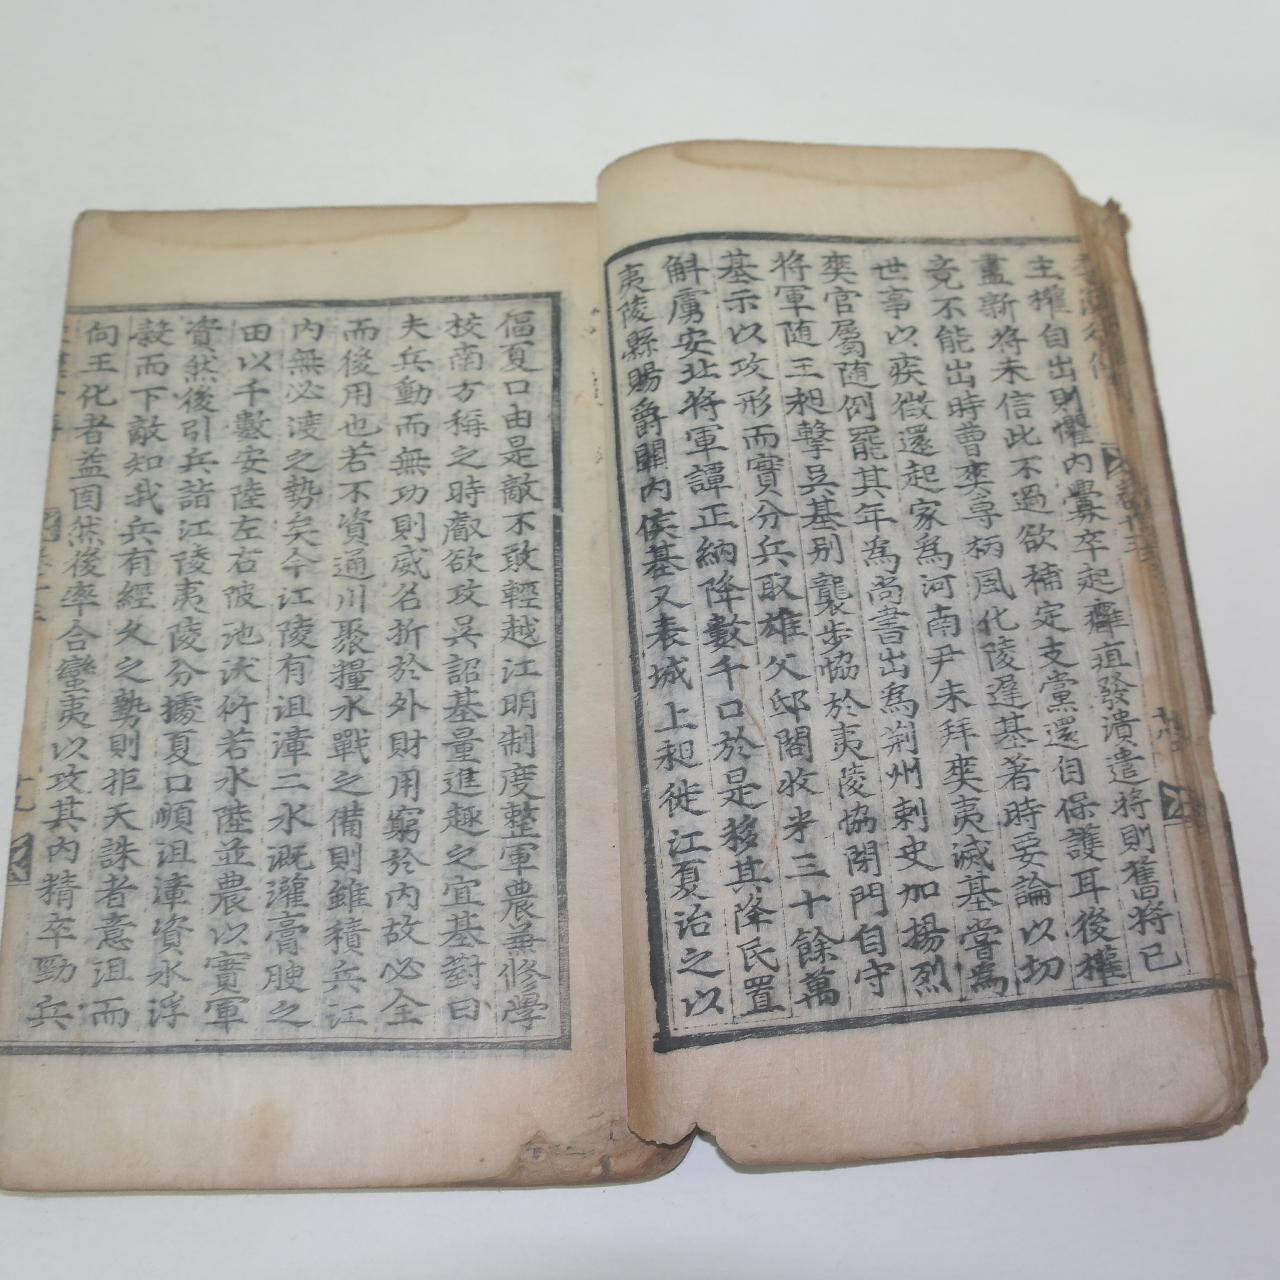 主權自出則懼內釁卒起癰疽發潰遣將則舊將已
盡新將未信此不過欲補定支黨還自保護耳後權
竟不能出時曹爽専柄風化陵遲基著時要論以切
世事以疾徴還起家爲河南尹未拜爽夷滅基嘗爲
爽官屬随例罷其年爲尚書出爲荆州刺史加揚烈
將軍随王昶擊吴基别襲步恊於夷陵協閉門自守
基示以攻形而實分兵取雄父邸閣收米三十餘萬
斛虜安北將軍譚正納降數千口於是移其降民置
夷陵縣賜爵關內侯基又表城上昶徙江夏治之以
偪夏口由是敵不敢輕越江明制度整軍農兼修學
校南方稱之時𠭴欲攻吴詔基量進趣之宜基對曰
夫兵動而無功則威名折於外財用窮於內故必全
而後用也若不資通川聚糧水戰之備則雖積兵江
內無必渡之勢矣今江陵有沮漳二水溉灌膏腴之
田以千數安陸左右陂池沃衍若水陸並農以實軍
資然後引兵詣江陵夷陵分據夏口順沮漳資水浮
穀而下敵知我兵有經久之勢則拒天誅者意沮而
向王化者益固然後率合蠻夷以攻其內精卒勁兵